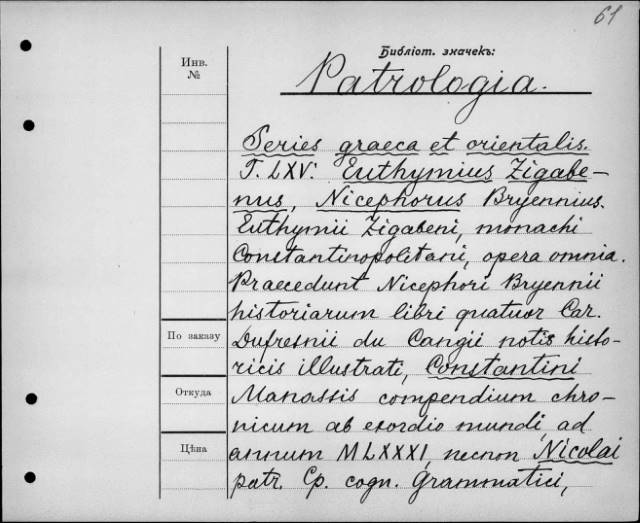 61
Библіот. значекъ:
Инв.
№
Patrologia.
Series graeca et orientalis.
T. LXV. Euthymius Zigabe-
nus, Nicephorus Bryennius.
Euthymii Zigabeni, monachi
Constantinopolitani, opera omnia.
Praecedunt Nicephori Bryennii
historiarum libri quatuor Car.
По заказу
Dufresnii du Cangii notis histo-
ricis illustrati, Constantini
Откуда
Manassis compendium chro-
nicum ab exordio mundi, ad
Цѣна
annum MLXXXI, necnon Nicolai
patr. Cp. cogn. Grammatici,